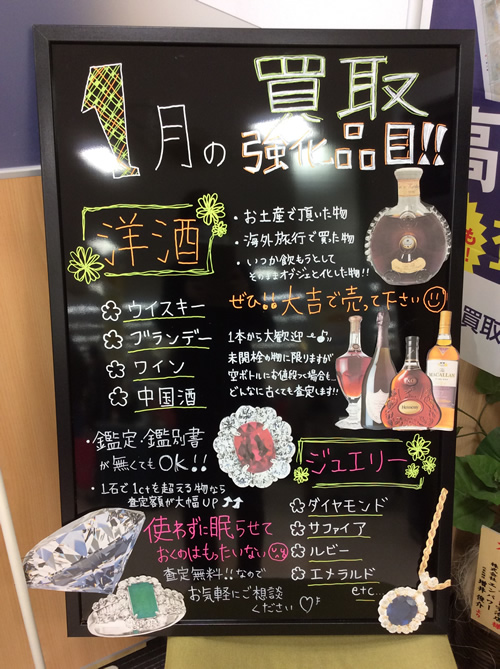 1月の買取
強化品目!!
洋酒
・お土産で頂いた物
・海外旅行で買った物
・いつか飲もうとして
そのままオブジェと化した物!!
ぜひ!!大吉で売って下さい
ウイスキー
ブランデー
ワイン
中国酒
1本から大歓迎
未開栓の物に限りますが
空ボトルにお値段つく場合も…
どんなに古くても査定します!!
MACALLAN
Hennessy
・鑑定・鑑別書
が無くてもOK!!
・1石で1ctを超える物なら
査定額が大幅UP
ジュエリー
ダイヤモンド
サファイア
ルビー
エメラルド
etc...
使わずに眠らせて
おくのはもったいない
査定無料!!なので
お気軽にご相談
ください♡
高
も
買取